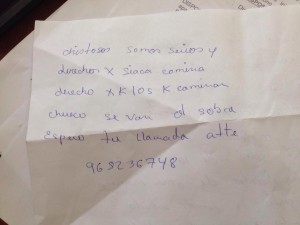 chistosos somos serios y
derechos x siaca camina
derecho x k los k caminan
chueco se van al sobra
espero tu llamada atte
968236748